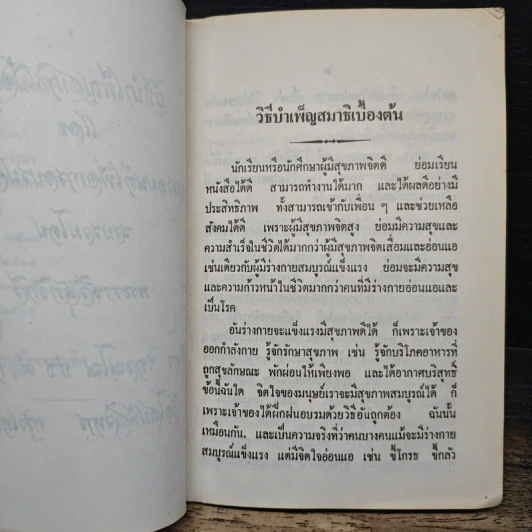 วิธีบำเพ็ญสมาธิเบื้องต้น
นักเรียนหรือนักศึกษาผู้มีสุขภาพจิตดี ย่อมเรียน
หนังสือได้ดี สามารถทำงานได้มาก และได้ผลดีอย่างมี
ประสิทธิภาพ ทั้งสามารถเข้ากับเพื่อน ๆ และช่วยเหลือ
สังคมได้ดี เพราะผู้มีสุขภาพจิตสูง ย่อมมีความสุขและ
ความสำเร็จในชีวิตได้มากกว่าผู้มีสุขภาพจิตเสื่อมและอ่อนแอ
เช่นเดียวกับผู้มีร่างกายสมบูรณ์แข็งแรง ย่อมจะมีความสุข
และความก้าวหน้าในชีวิตมากกว่าคนที่มีร่างกายอ่อนแอและ
เป็นโรค
อันร่างกายจะแข็งแรงมีสุขภาพดีได้ ก็เพราะเจ้าของ
ออกกำลังกาย รู้จักรักษาสุขภาพ เช่น รู้จักบริโภคอาหารที่
ถูกสุขลักษณะ พักผ่อนให้เพียงพอ และได้อากาศบริสุทธิ์
ข้อนี้ฉันใด จิตใจของมนุษย์เราจะมีสุขภาพสมบูรณ์ได้ ก็
เพราะเจ้าของได้ฝึกฝนอบรมด้วยวิธีอันถูกต้อง ฉันนั้น
เหมือนกัน. และเป็นความจริงที่ว่าคนบางคนแม้จะมีร่างกาย
สมบูรณ์แข็งแรง แต่มีจิตใจอ่อนแอ เช่น ขี้โกรธ ขี้กลัว